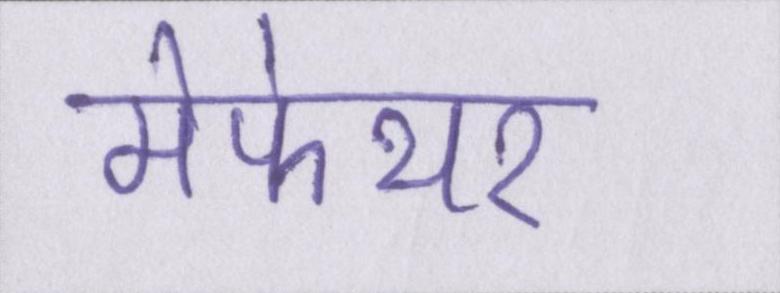 मेफेयर